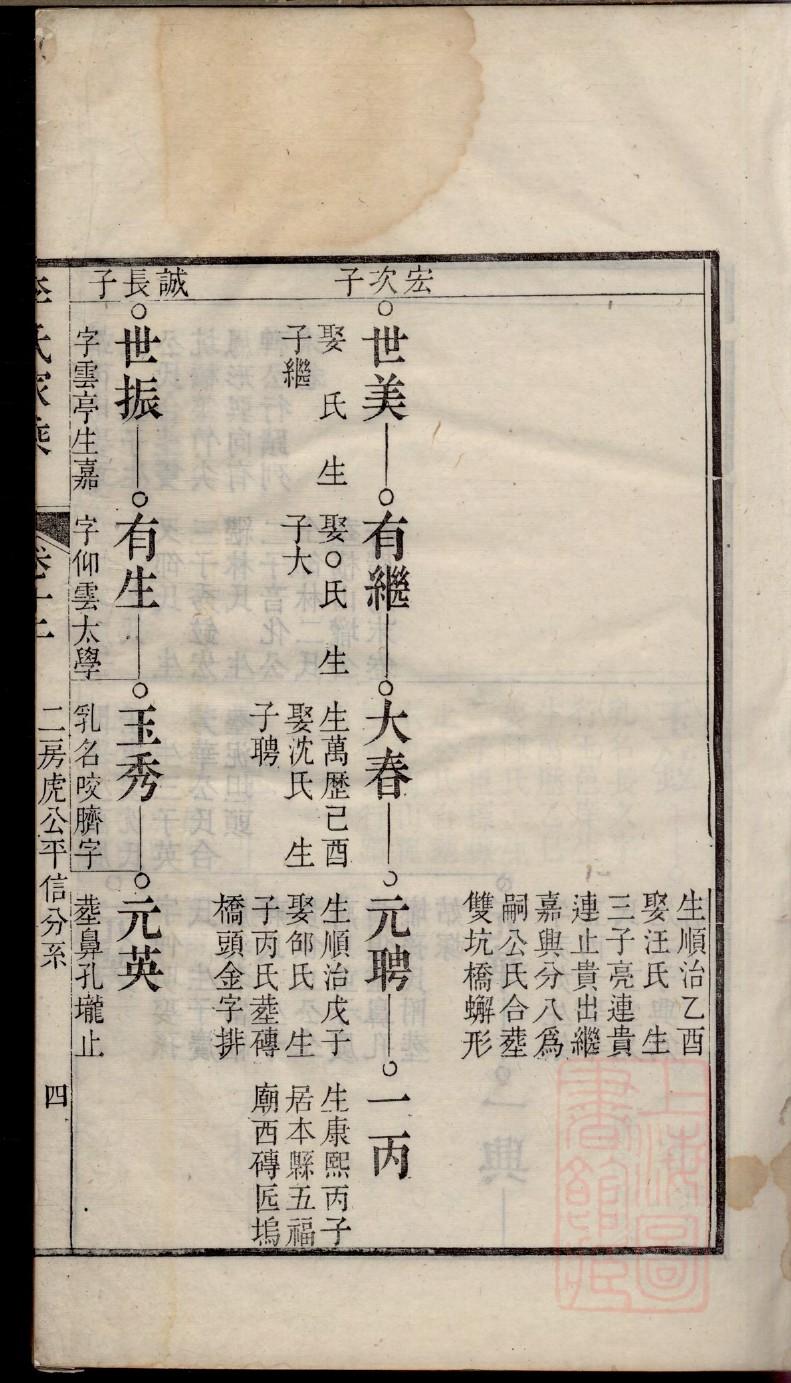 生順治乙酉
娶汪氏 生
三子亮連貴
連止貴出繼
嘉與分八爲
嗣公氏合塟
雙坑橋蠏形
宏次子
世美
娶 氏 生
子繼
有繼
娶○氏 生
子大
大春
生萬歷己酉
娶沈氏 生
子聘
元聘
生順治戊子
娶邰氏 生
子丙氏塟磚
橋頭金字排
一丙
生康熙丙子
居本縣五福
廟西磚匠塢
誠長子
世振
字雲亭生嘉
有生
字仰雲太學
玉秀
乳名咬臍字
元英
塟鼻孔壠止
氏家乘
卷十二
二房虎公平信分系
四
上海圖書館藏